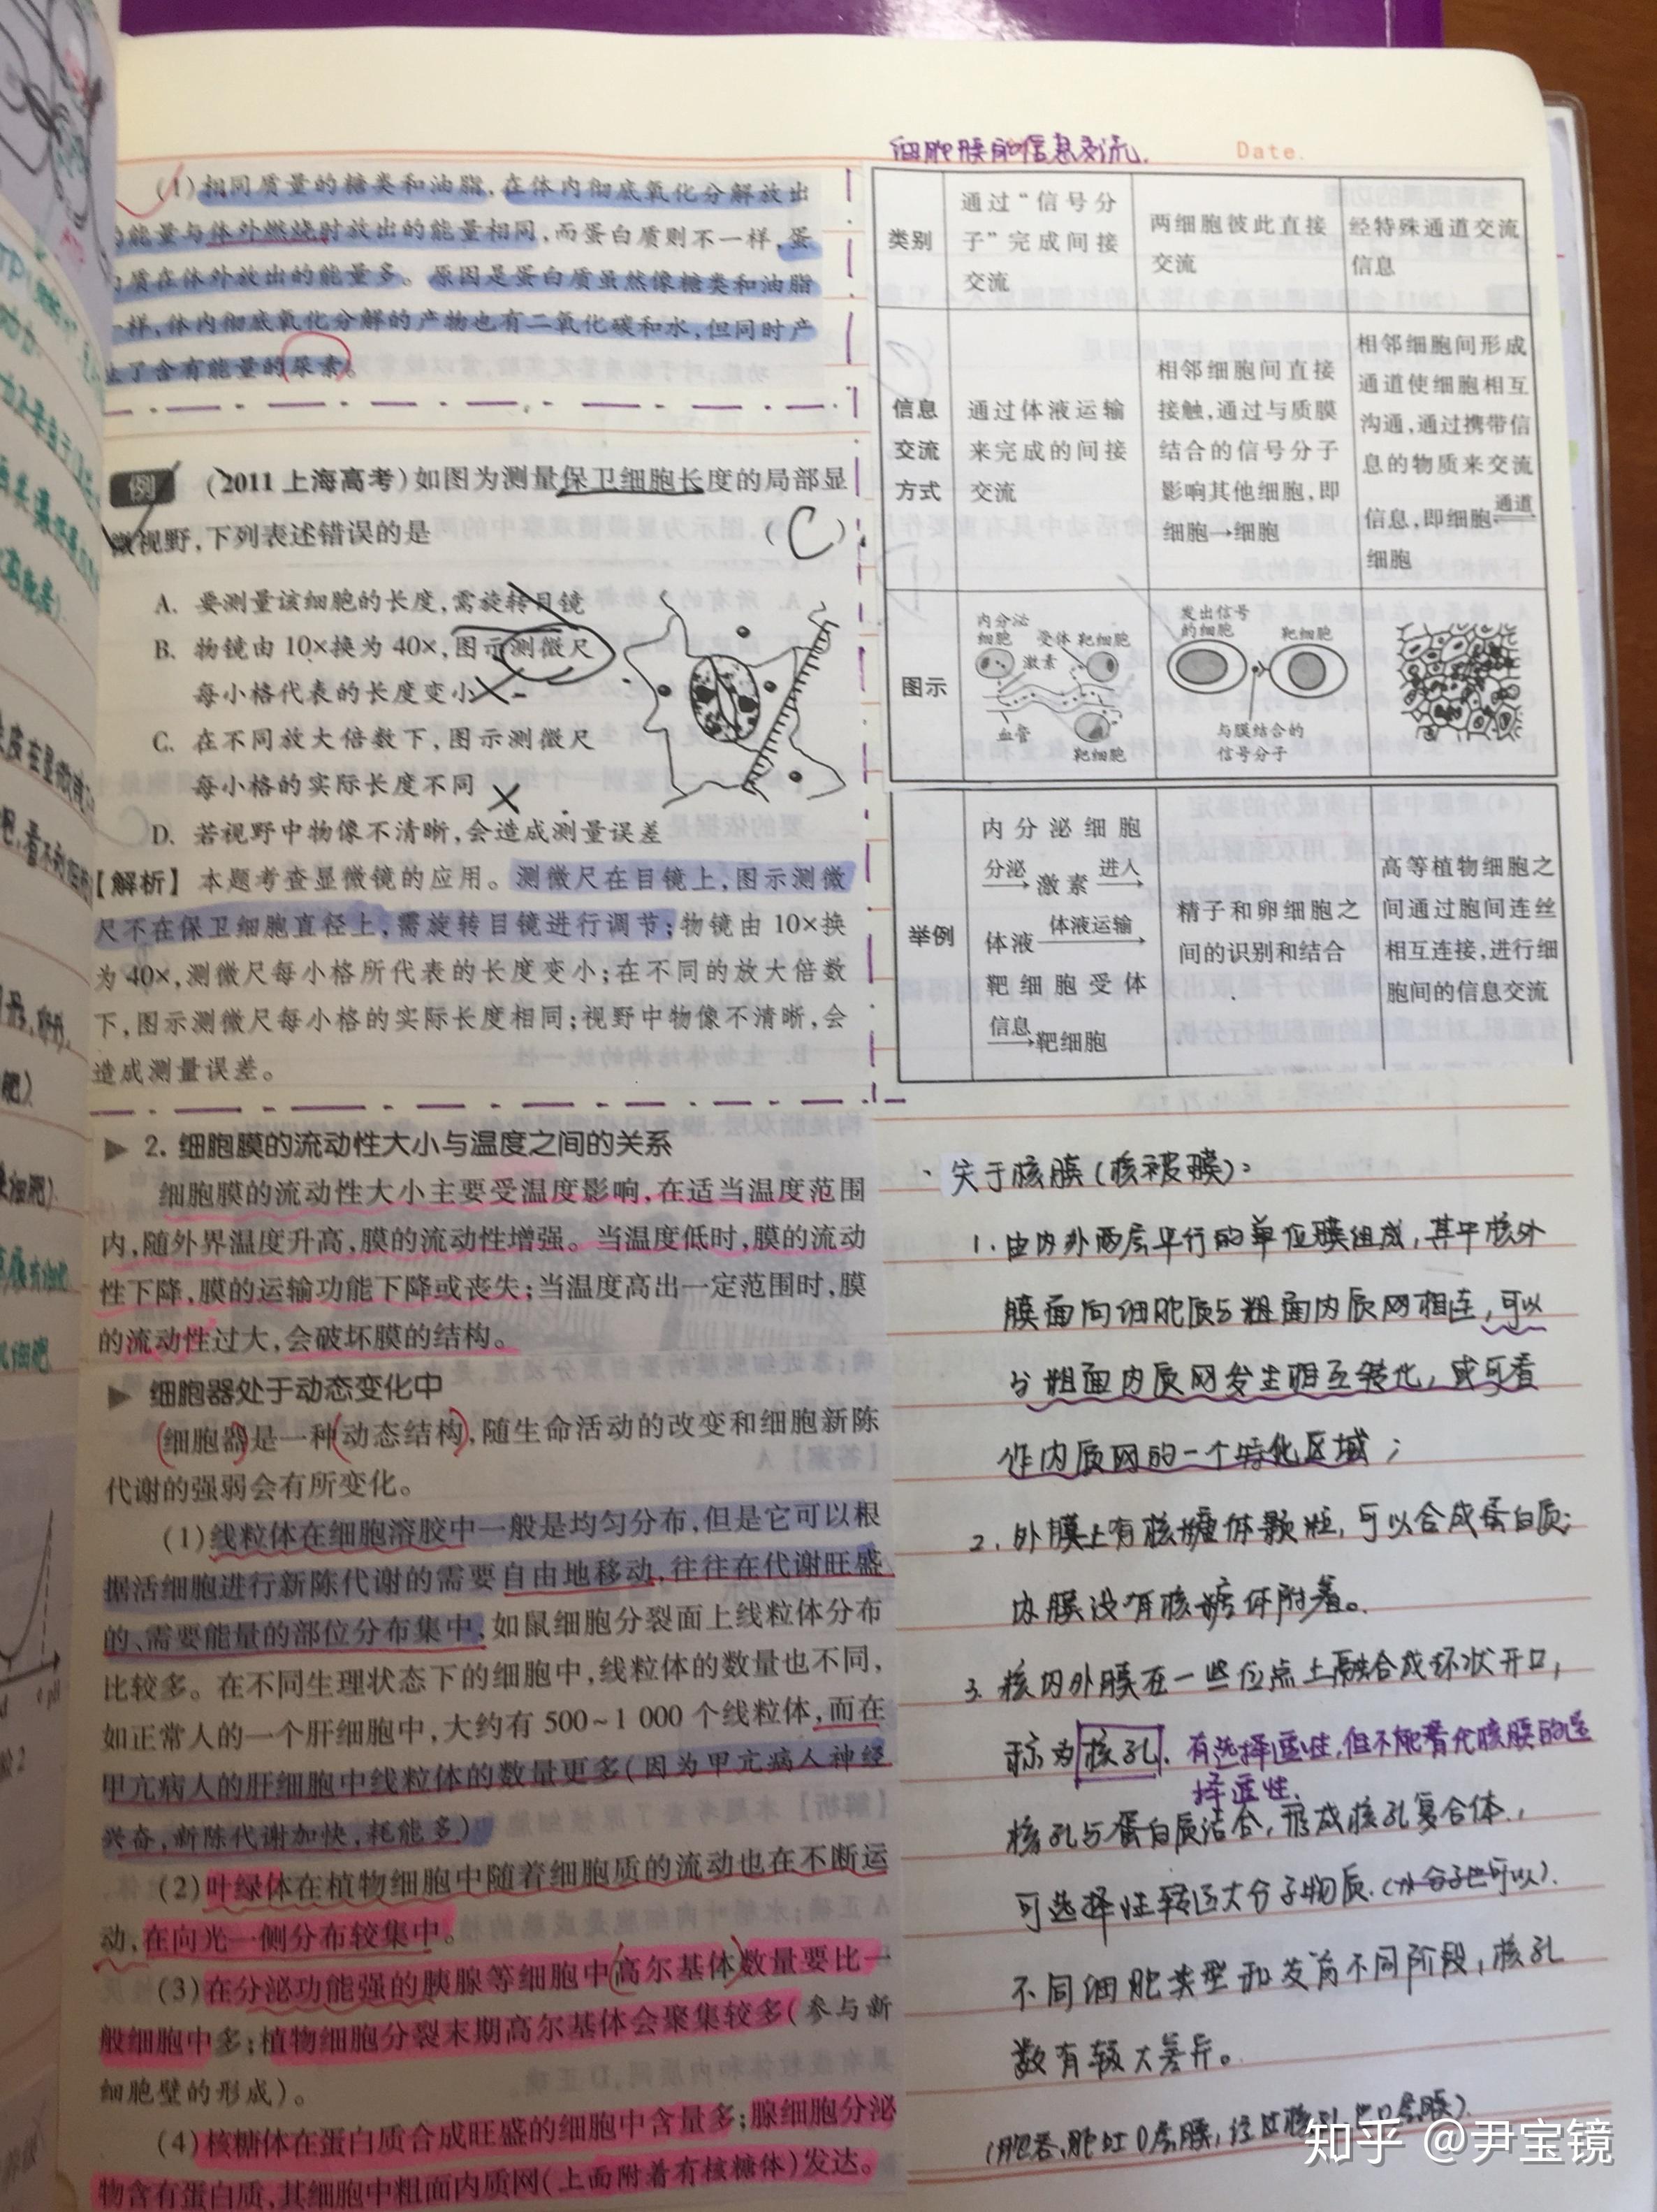 (1)相同质量的糖类和油脂,在体内彻底氧化分解放出
能量与体外燃烧时放出的能量相同,而蛋白质则不一样,蛋
质在体外放出的能量多。原因是蛋白质虽然像糖类和油脂
一样,体内彻底氧化分解的产物也有二氧化碳和水,但同时产
了含有能量的尿素。
例 (2011上海高考)如图为测量保卫细胞长度的局部显
微视野,下列表述错误的是 (C)
A. 要测量该细胞的长度,需旋转目镜
B. 物镜由10×换为40×,图示测微尺
每小格代表的长度变小
C. 在不同放大倍数下,图示测微尺
每小格的实际长度不同
D. 若视野中物像不清晰,会造成测量误差
【解析】本题考查显微镜的应用。测微尺在目镜上,图示测微
尺不在保卫细胞直径上,需旋转目镜进行调节;物镜由10×换
为40×,测微尺每小格所代表的长度变小;在不同的放大倍数
下,图示测微尺每小格的实际长度相同;视野中物像不清晰,会
造成测量误差。
▶ 2. 细胞膜的流动性大小与温度之间的关系
细胞膜的流动性大小主要受温度影响,在适当温度范围
内,随外界温度升高,膜的流动性增强。当温度低时,膜的流动
性下降,膜的运输功能下降或丧失;当温度高出一定范围时,膜
的流动性过大,会破坏膜的结构。
▶ 细胞器处于动态变化中
细胞器是一种动态结构,随生命活动的改变和细胞新陈
代谢的强弱会有所变化。
(1)线粒体在细胞溶胶中一般是均匀分布,但是它可以根
据活细胞进行新陈代谢的需要自由地移动,往往在代谢旺盛
的、需要能量的部位分布集中,如鼠细胞分裂面上线粒体分布
比较多。在不同生理状态下的细胞中,线粒体的数量也不同,
如正常人的一个肝细胞中,大约有500~1 000个线粒体,而在
甲亢病人的肝细胞中线粒体的数量更多(因为甲亢病人神经
兴奋,新陈代谢加快,耗能多)
(2)叶绿体在植物细胞中随着细胞质的流动也在不断运
动,在向光一侧分布较集中。
(3)在分泌功能强的胰腺等细胞中高尔基体数量要比一
般细胞中多;植物细胞分裂末期高尔基体会聚集较多(参与新
细胞壁的形成)。
(4)核糖体在蛋白质合成旺盛的细胞中含量多;腺细胞分泌
物含有蛋白质,其细胞中粗面内质网(上面附着有核糖体)发达。
细胞膜的信息交流.
Date.
类别
通过“信号分
子”完成间接
交流
两细胞彼此直接
交流
经特殊通道交流
信息
信息
交流
方式
通过体液运输
来完成的间接
交流
相邻细胞间直接
接触,通过与质膜
结合的信号分子
影响其他细胞,即
细胞→细胞
相邻细胞间形成
通道使细胞相互
沟通,通过携带信
息的物质来交流
信息,即细胞通道→
细胞
图示
内分泌
细胞
受体 靶细胞
激素
血管
靶细胞
发出信号
的细胞
靶细胞
与膜结合的
信号分子
举例
内分泌细胞
分泌→激素进入→
体液体液运输→
靶细胞受体
信息→靶细胞
精子和卵细胞之
间的识别和结合
高等植物细胞之
间通过胞间连丝
相互连接,进行细
胞间的信息交流
关于核膜(核被膜):
1. 由内外两层平行的单位膜组成,其中核外
膜面向细胞质与粗面内质网相连,可以
与粗面内质网发生相互转化,或可看
作内质网的一个特化区域;
2. 外膜上有核糖体颗粒,可以合成蛋白质;
内膜没有核糖体附着。
3. 核内外膜在一些位点上融合成环状开口,
称为核孔. 有选择透性,但不能替代核膜的选
择透性.
核孔与蛋白质结合,形成核孔复合体.,
可选择性转运大分子物质.(小分子也可以).
不同细胞类型和发育不同阶段,核孔
数有较大差异。
(胞吞、胞吐0层膜,经过核孔也0层膜).
知乎 @尹宝镜